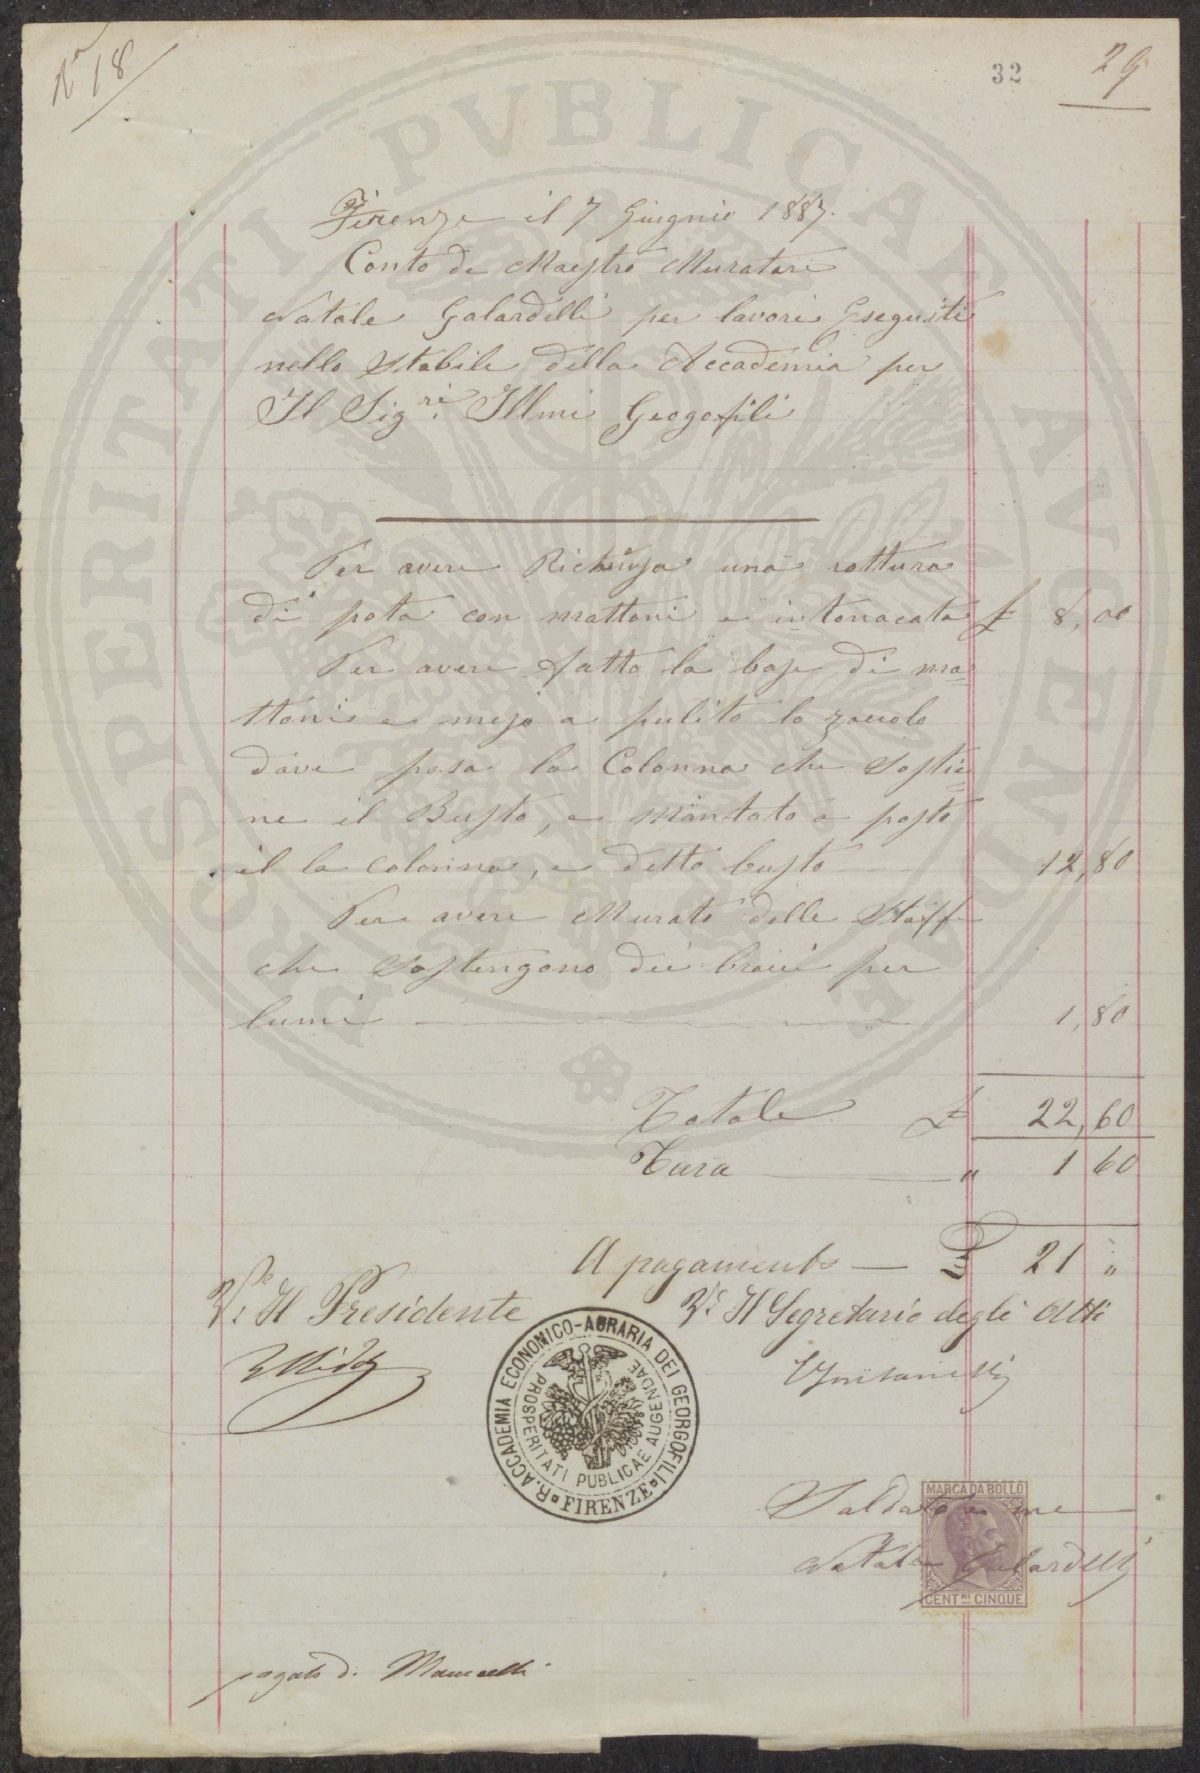 Nº 18
32
29
Firenze il 7 Giugnio 1887.
Conto di Maestro Muratore
Natale Galardelli per lavori Eseguiti
nello Stabile della Accademia per
Il Sig.ri Illmi Geogofili
Per avere Richiusa una rottura
di pota con mattoni e intonacata £ 8,00
Per avere fatto la base di ma=
ttoni e messo a pulito lo zoccolo
dove posa la Colonna che Sostie=
ne il Busto, e Montato a posto
il la colonna, e detto busto 12,80
Per avere Murato delle Staffe
che Sostengono dei bracci per
lumi 1,80
Totale £ 22,60
Tara " 1 60
A pagamento — £ 21 "
V.º Il Presidente
V.º Il Segretario degli Atti
R. ACCADEMIA ECONOMICO-AGRARIA DEI GEORGOFILI
FIRENZE
PROSPERITATI PUBLICAE AUGENDAE
Saldato a me
Natale Galardelli
MARCA DA BOLLO
CENT.MI CINQUE
pagato d.
PROSPERITATI PVBLICAE AVGENDAE